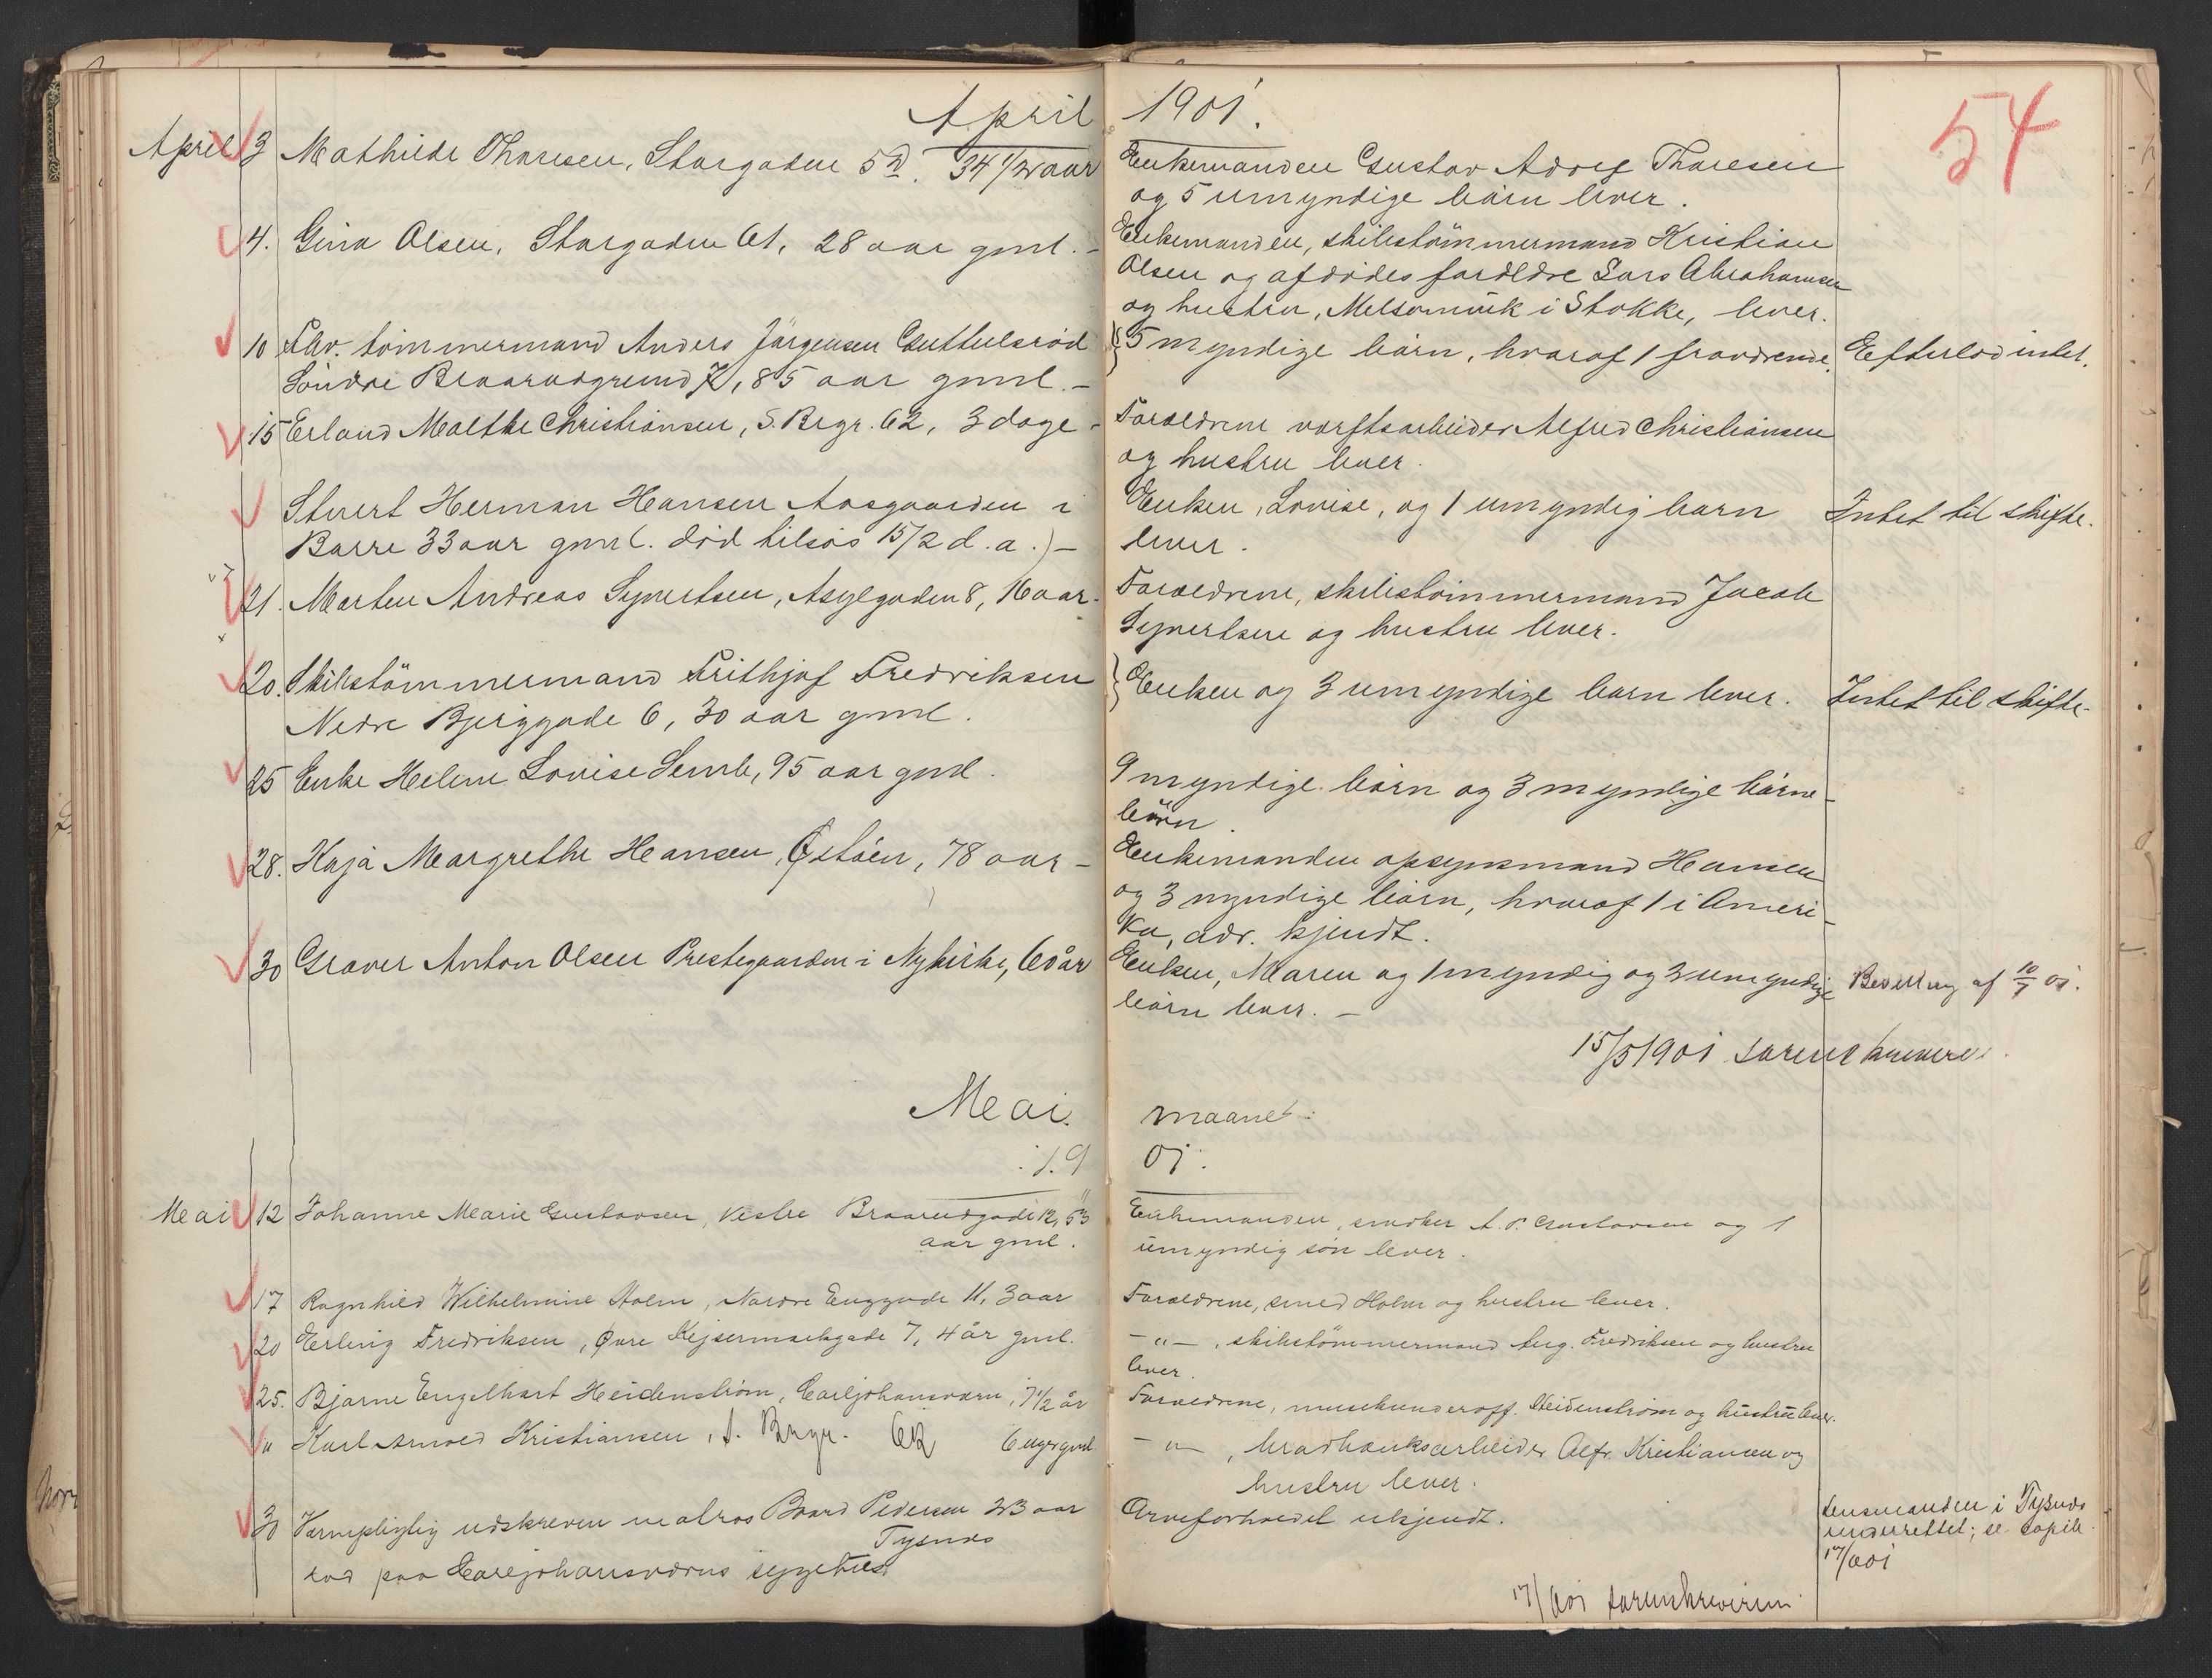 April 1901.
54
April 3 Mathilde Thoresen, Storgaden 5d. 34 1/2 aar
Enkemanden Gustav Adolf Thoresen
og 5 umyndige børn lever.
4. Gina Olsen, Storgaden 61, 28 aar gml. -
Enkemanden, skibstömmermand Kristian
Olsen og afdødes forældre Lars Abrahamsen
og hustru, Melsomvik i Stokke, lever.
10 Fhv. tömmermand Anders Jörgensen Guttulsröd
Söndre Braarudgrund 7, 85 aar gml. -
5 myndige börn, hvoraf 1 fraværende.
Efterlod intet.
15 Erland Malthe Christiansen, S. Brgr. 62, 3 dage -
Forældrene værftsarbeider Alfred Christiansen
og hustru lever.
Stuert Herman Hansen Aasgaarden i
Borre 33 aar gml. död tilsös 15/2 d. a.) -
Enken, Lovise, og 1 umyndig barn
lever.
Intet til skifte.
21. Morten Andreas Syvertsen, Asylgaden 8, 16 aar.
Forældrene, skibstömmermand Jacob
Syvertsen og hustru lever.
20. Skibstömmermand Frithjof Fredriksen
Nedre Bjerggade 6, 30 aar gml.
Enken og 3 umyndige barn lever.
Intet til skifte.
25 Enke Helene Lovise Semb, 95 aar gml.
9 myndige börn og 3 myndige börne-
börn.
28. Kaja Margrethe Hansen, Östöen, 78 aar -
Enkemanden opsynsmand Hansen
og 3 myndige börn, hvoraf 1 i Ameri-
ka, adr. kjendt.
30 Graver Anton Olsen Prestegaarden i Nykirke, 60 år
Enken, Maren og 1 myndig og 3 umyndige
börn lever. -
Bevilling af 10/7 01.
15/5 1901 sorenskriveren.
Mai maaned.
19 01.
Mai 12 Johanne Marie Gustavsen, Vestre Braarudgade 12, 53
aar gml.
Enkemanden, snedker A. P. Gustavsen og 1
umyndig sön lever.
17 Ragnhild Wilhelmine Holm, Nordre Enggade 11, 3 aar
Forældrene, smed Holm og hustru lever.
20 Erling Fredriksen, Övre Kejsermælegade 7, 4 år gml.
- " - , skibstömmermand Aug. Fredriksen og hustru
lever.
25. Bjarne Engelhart Heidenström, Carljohansværn, 7 1/2 år
Forældrene, maskunderoff. Heidenström og hustru lever.
" Karl Arnold Kristiansen, S. Brgr. 62 6 uger gml.
- " - , Alfr. Kristiansen og
hustru lever.
30 Værnepligtig udskreven matros Baard Pedersen 23 aar
Tysnæs
död paa Carljohansværns sygehus
Arveforholdet ukjendt.
Lensmanden i Tysnæs
underrettet; se kopib.
17/6 01
17/6 01 sorenskriveren.